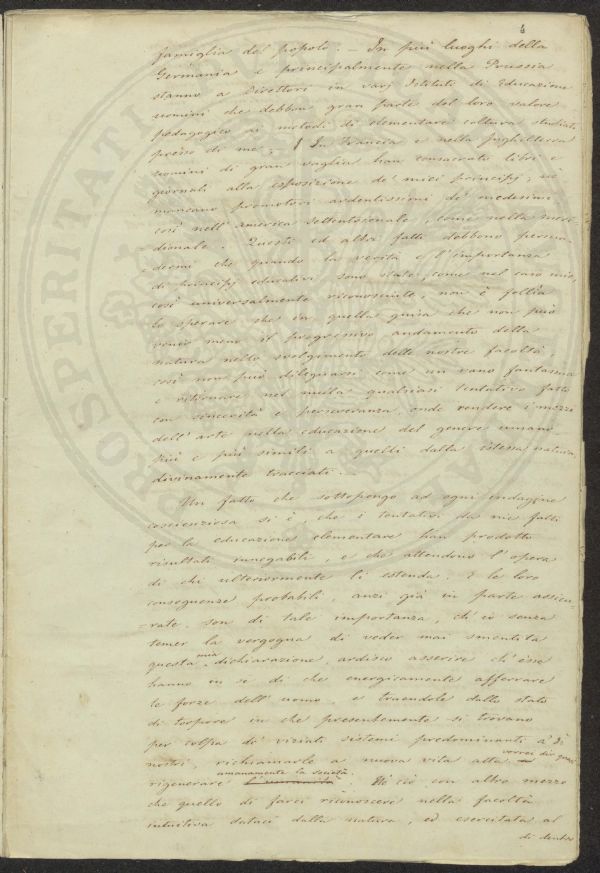 4
famiglia del popolo. – In più luoghi della
Germania e principalmente nella Prussia
stanno a Direttori in varj Istituti di Educazione
uomini che debbon gran parte del loro valore
pedagogico ai metodi di elementare coltura studiati
presso di me. – In Francia e nella Inghilterra
uomini di gran vaglia han consacrato libri e
giornali alla esposizione de' miei principj; nè
mancano promotori ardentissimi de' medesimi
così nell'America Settentrionale, come nella meri-
dionale. Questi ed altri fatti debbono persua-
dermi che quando la verità e l'importanza
di principj educativi sono state, come nel caso mio,
così universalmente riconosciute, non è follia
lo sperare che in quella guisa che non può
venir meno il progressivo andamento della
natura nello svolgimento delle nostre facoltà,
così non può dileguarsi come un vano fantasma
e ritornare nel nulla qualsiasi tentativo fatto
con sincerità e perseveranza, onde rendere i mezzi
dell'arte nella educazione del genere umano
più e più simili a quelli dalla istessa natura
divinamente tracciati. –
Un fatto che sottopongo ad ogni indagine
coscienziosa si è, che i tentativi da me fatti
per la educazione elementare han prodotto
risultati innegabili, e che attendono l'opera
di chi ulteriormente li estenda. E le loro
conseguenze probabili, anzi già in parte assicu-
rate, son di tale importanza, ch'io senza
temer la vergogna di veder mai smentita
questa mia dichiarazione, ardisco asserire ch'esse
hanno in se di che energicamente afferrare
le forze dell'uomo, e traendole dallo stato
di torpore in che presentemente si trovano
per colpa di viziati sistemi predominanti a' dì
nostri, richiamarle a nuova vita atta vorrei dir quasi
rigenerare umanamente la società. Nè ciò con altro mezzo
che quello di farci riconoscere nella facoltà
intuitiva dataci dalla natura, ed esercitata al
di dentro
PROSPERITATI